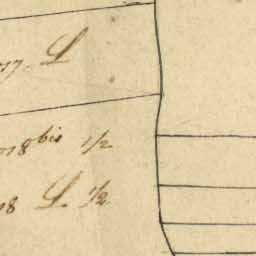 17 L
18 bis 1/2
18 L. 1/2